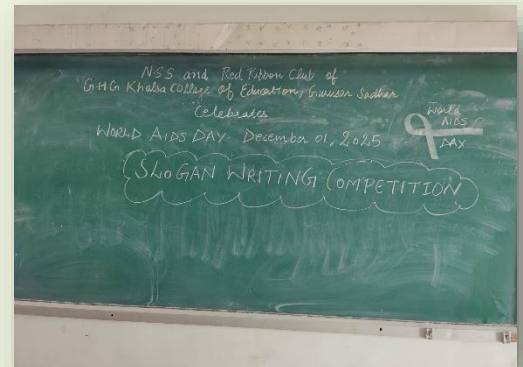 NSS and Red Ribbon Club of
GHG Khalsa College of Education, Gurusar Sadhar
Celebrates
WORLD AIDS DAY - December 01, 2025
World
AIDS
DAY
SLOGAN WRITING COMPETITION